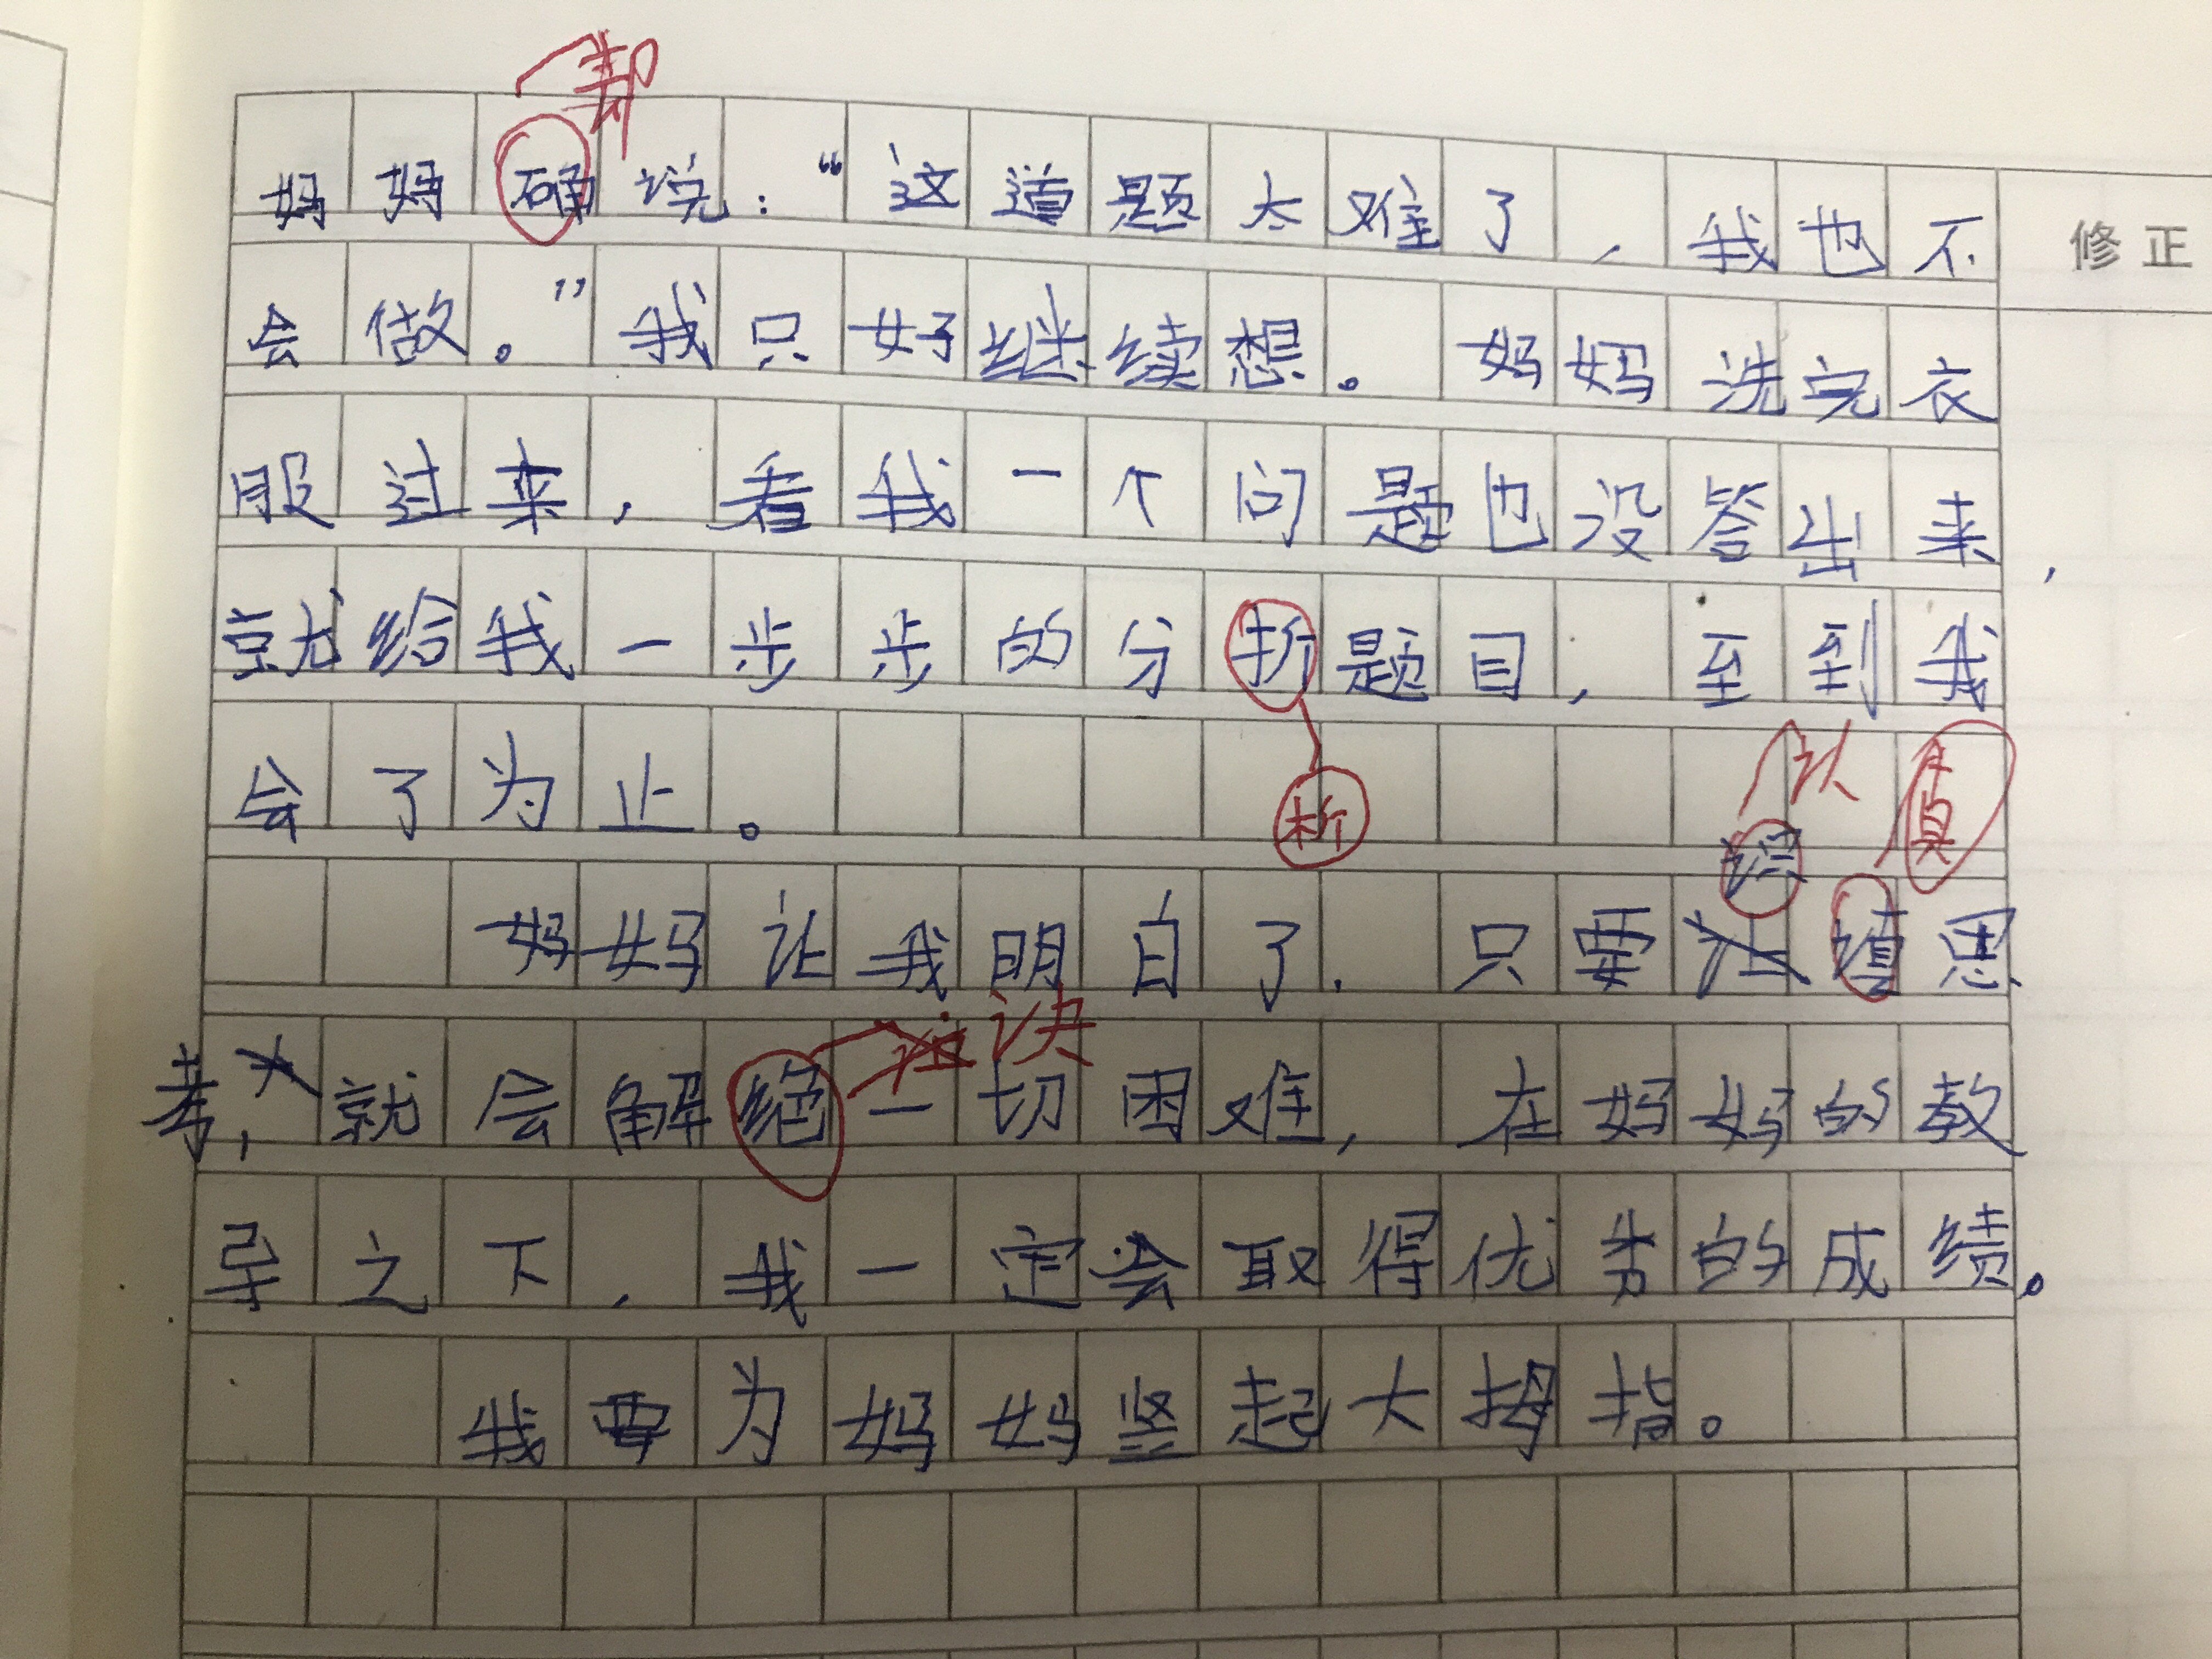 却
妈妈确说：“这道题太难了，我也不
修正
会做。”我只好继续想。妈妈洗完衣
服过来，看我一个问题也没答出来，
就给我一步步的分折题目，至到我
会了为止。
认 真
析
妈妈让我明白了．只要思
决
考，就会解绝一切困难，在妈妈的教
导之下，我一定会取得优秀的成绩。
我要为妈妈竖起大拇指。